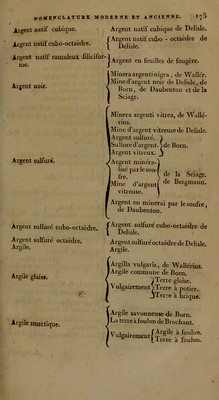 NOMENCLATURE MODERNE ET ANCIENNE. 275
Argent natif cubique. Argent natif cubique de Delisle.
Argent natif cubo-octaèdre. Argent natif cubo-octaèdre de
Delisle.
Argent natif ramuleux filicifor-
me. Argent en feuilles de fougère.
Argent noir.
Minera argenti nigra, de Wallér.
Mine d'argent noir de Delisle, de
Born, de Daubenton et de la
Sciagr.
Argent sulfuré.
Minera argenti vitrea, de Wallé-
rius.
Mine d'argent vitreuse de Delisle.
Argent sulfuré.
Sulfure d'argent. de Born.
Argent vitreux.
Argent minéra-
lisé par le sou-
fre.
Mine d'argent
vitreuse.
de la Sciagr.
de Bergmann.
Argent en minerai par le soufre,
de Daubenton.
Argent sulfuré cubo-octaèdre. Argent sulfuré cubo-octaèdre de
Delisle.
Argent sulfuré octaèdre. Argent sulfuré octaèdre de Delisle.
Argile. Argile.
Argile glaise.
Argilla vulgaris, de Wallérius.
Argile commune de Born.
Vulgairement
Terre glaise.
Terre à potier.
Terre à brique.
Argile smectique.
Argile savonneuse de Born.
La terre à foulon de Brochant.
Vulgairement
Argile à foulon.
Terre à foulon.